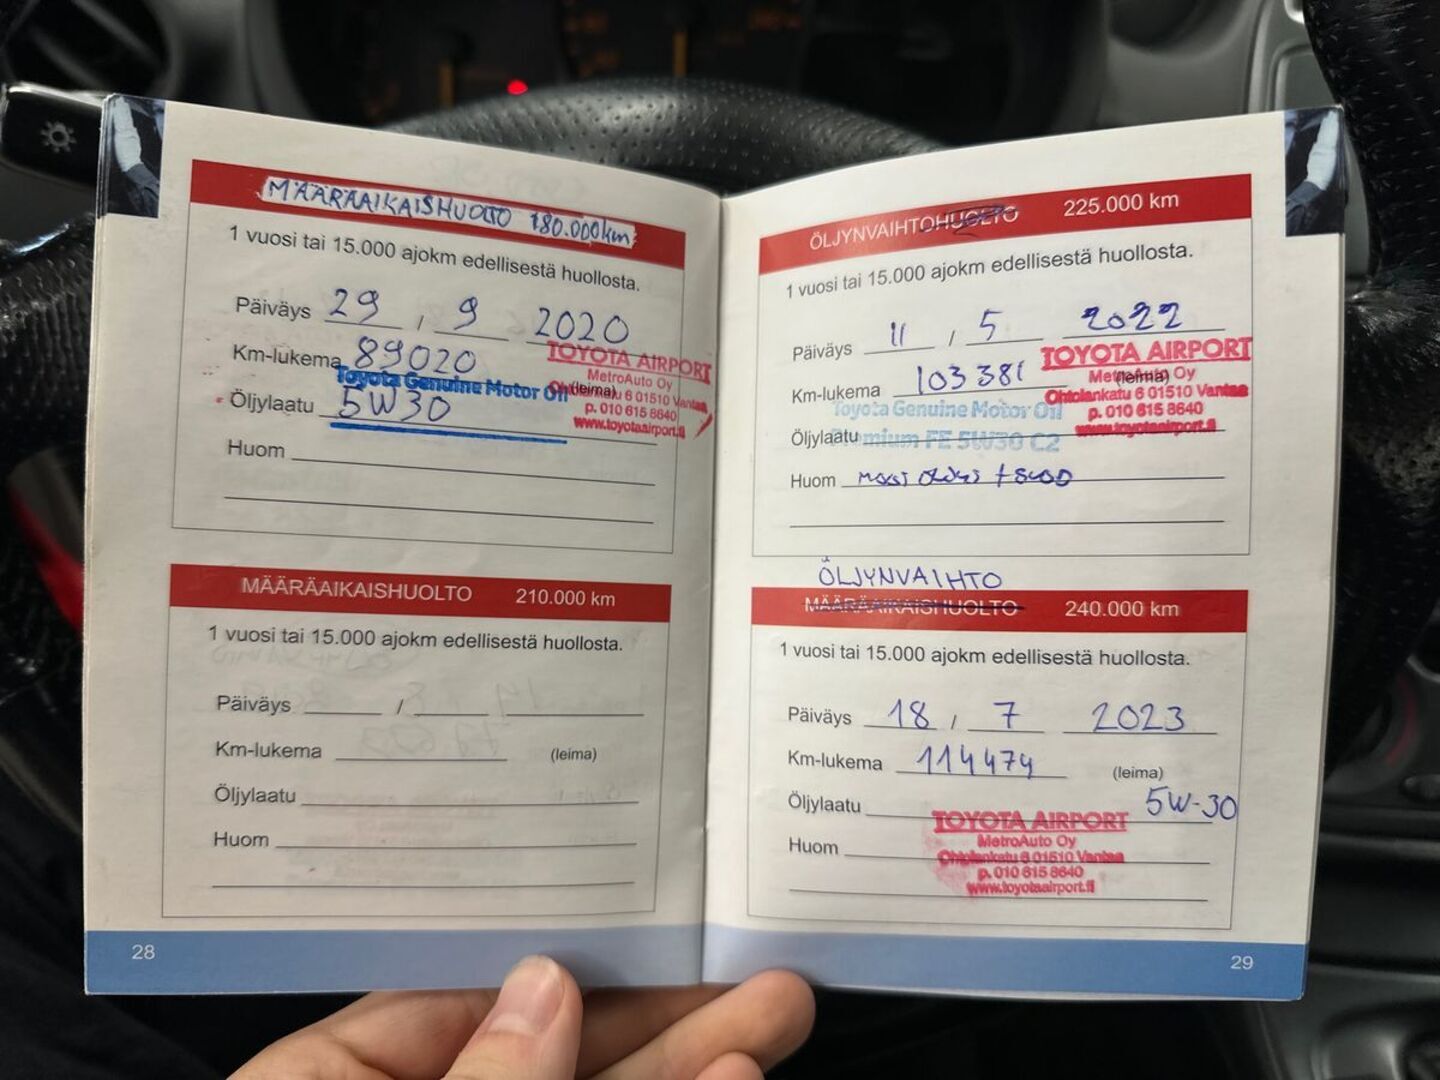 MÄÄRÄAIKAISHUOLTO 180.000km
1 vuosi tai 15.000 ajokm edellisestä huollosta.
Päiväys 29 / 9 2020
Km-lukema 89020 (leima)
Öljylaatu 5W30
Toyota Genuine Motor Oil
TOYOTA AIRPORT
MetroAuto Oy
Ohtolankatu 6 01510 Vantaa
p. 010 615 8640
www.toyotaairport.fi
Huom
MÄÄRÄAIKAISHUOLTO 210.000 km
1 vuosi tai 15.000 ajokm edellisestä huollosta.
Päiväys /
Km-lukema (leima)
Öljylaatu
Huom
28
ÖLJYNVAIHTOHUOLTO 225.000 km
1 vuosi tai 15.000 ajokm edellisestä huollosta.
Päiväys 11 / 5 2022
Km-lukema 103381 (leima)
Toyota Genuine Motor Oil
Öljylaatu Premium FE 5W30 C2
TOYOTA AIRPORT
MetroAuto Oy
Ohtolankatu 6 01510 Vantaa
p. 010 615 8640
www.toyotaairport.fi
Huom
ÖLJYNVAIHTO
MÄÄRÄAIKAISHUOLTO 240.000 km
1 vuosi tai 15.000 ajokm edellisestä huollosta.
Päiväys 18 / 7 2023
Km-lukema 114474 (leima)
Öljylaatu 5W-30
Huom
TOYOTA AIRPORT
MetroAuto Oy
Ohtolankatu 6 01510 Vantaa
p. 010 615 8640
www.toyotaairport.fi
29